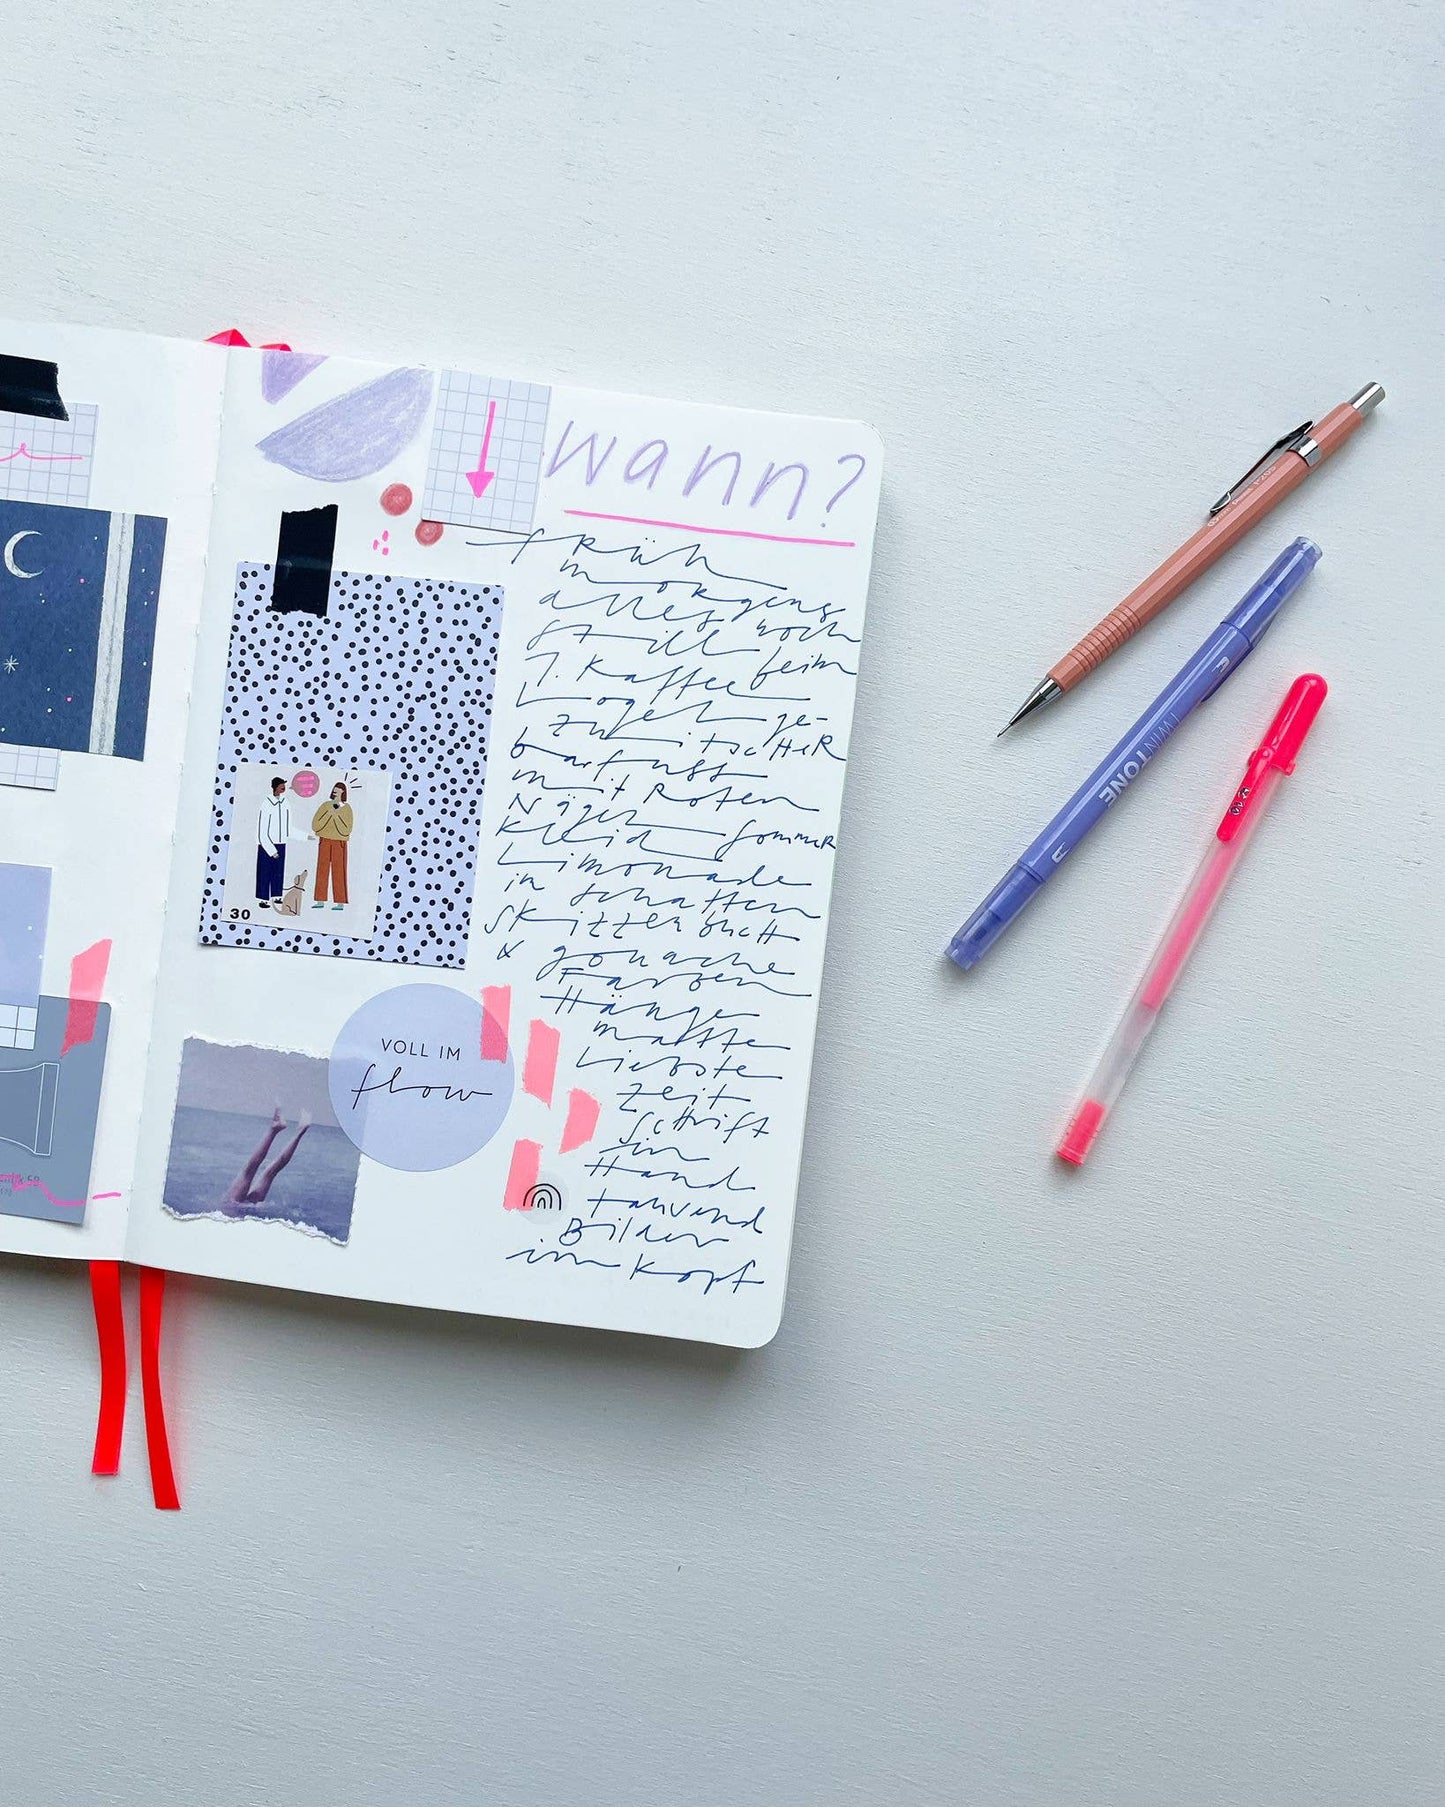 wann?
früh
morgens
alles noch
still
1. Kaffee beim
Vogel ge-
zwitscher
barfuss
mit roten
Nägel
Kleid Sommer
Limonade
im Schatten
Skizzenbuch
& gouache
Farben
Hänge
matte
Liebste
Zeit
schrift
in
Hand
tausend
Bilder
im Kopf
30
VOLL IM
flow
TWINTONE
P205